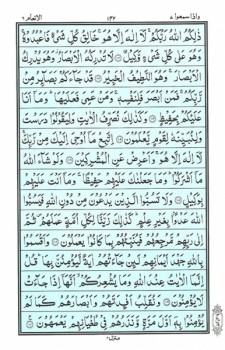 الانعام ٦
١٤٢
واذا سمعوا ٧
ذٰلِكُمُ اللّٰهُ رَبُّكُمْ لَاۤ اِلٰهَ اِلَّا هُوَ خَالِقُ كُلِّ شَیْءٍ فَاعْبُدُوْهُ
وَهُوَ عَلٰی كُلِّ شَیْءٍ وَّكِیْلٌ لَا تُدْرِكُهُ الْاَبْصَارُ وَهُوَ یُدْرِكُ
الْاَبْصَارَ وَهُوَ اللَّطِیْفُ الْخَبِیْرُ قَدْ جَآءَكُمْ بَصَآئِرُ مِنْ
رَّبِّكُمْ فَمَنْ اَبْصَرَ فَلِنَفْسِهٖ وَمَنْ عَمِیَ فَعَلَیْهَا وَمَاۤ اَنَا
عَلَیْكُمْ بِحَفِیْظٍ وَكَذٰلِكَ نُصَرِّفُ الْاٰیٰتِ وَلِیَقُوْلُوْا دَرَسْتَ
وَلِنُبَیِّنَهٗ لِقَوْمٍ یَّعْلَمُوْنَ اِتَّبِعْ مَاۤ اُوْحِیَ اِلَیْكَ مِنْ رَّبِّكَ
لَاۤ اِلٰهَ اِلَّا هُوَ وَاَعْرِضْ عَنِ الْمُشْرِكِیْنَ وَلَوْ شَآءَ اللّٰهُ
مَاۤ اَشْرَكُوْا وَمَا جَعَلْنٰكَ عَلَیْهِمْ حَفِیْظًا وَمَاۤ اَنْتَ عَلَیْهِمْ
بِوَكِیْلٍ وَلَا تَسُبُّوا الَّذِیْنَ یَدْعُوْنَ مِنْ دُوْنِ اللّٰهِ فَیَسُبُّوا
اللّٰهَ عَدْوًۢا بِغَیْرِ عِلْمٍ كَذٰلِكَ زَیَّنَّا لِكُلِّ اُمَّةٍ عَمَلَهُمْ ثُمَّ
اِلٰی رَبِّهِمْ مَّرْجِعُهُمْ فَیُنَبِّئُهُمْ بِمَا كَانُوْا یَعْمَلُوْنَ وَاَقْسَمُوْا
بِاللّٰهِ جَهْدَ اَیْمَانِهِمْ لَئِنْ جَآءَتْهُمْ اٰیَةٌ لَّیُؤْمِنُنَّ بِهَا قُلْ
اِنَّمَا الْاٰیٰتُ عِنْدَ اللّٰهِ وَمَا یُشْعِرُكُمْ اَنَّهَاۤ اِذَا جَآءَتْ
لَا یُؤْمِنُوْنَ وَنُقَلِّبُ اَفْئِدَتَهُمْ وَاَبْصَارَهُمْ كَمَا لَمْ
یُؤْمِنُوْا بِهٖۤ اَوَّلَ مَرَّةٍ وَّنَذَرُهُمْ فِیْ طُغْیَانِهِمْ یَعْمَهُوْنَ
منزل ٢